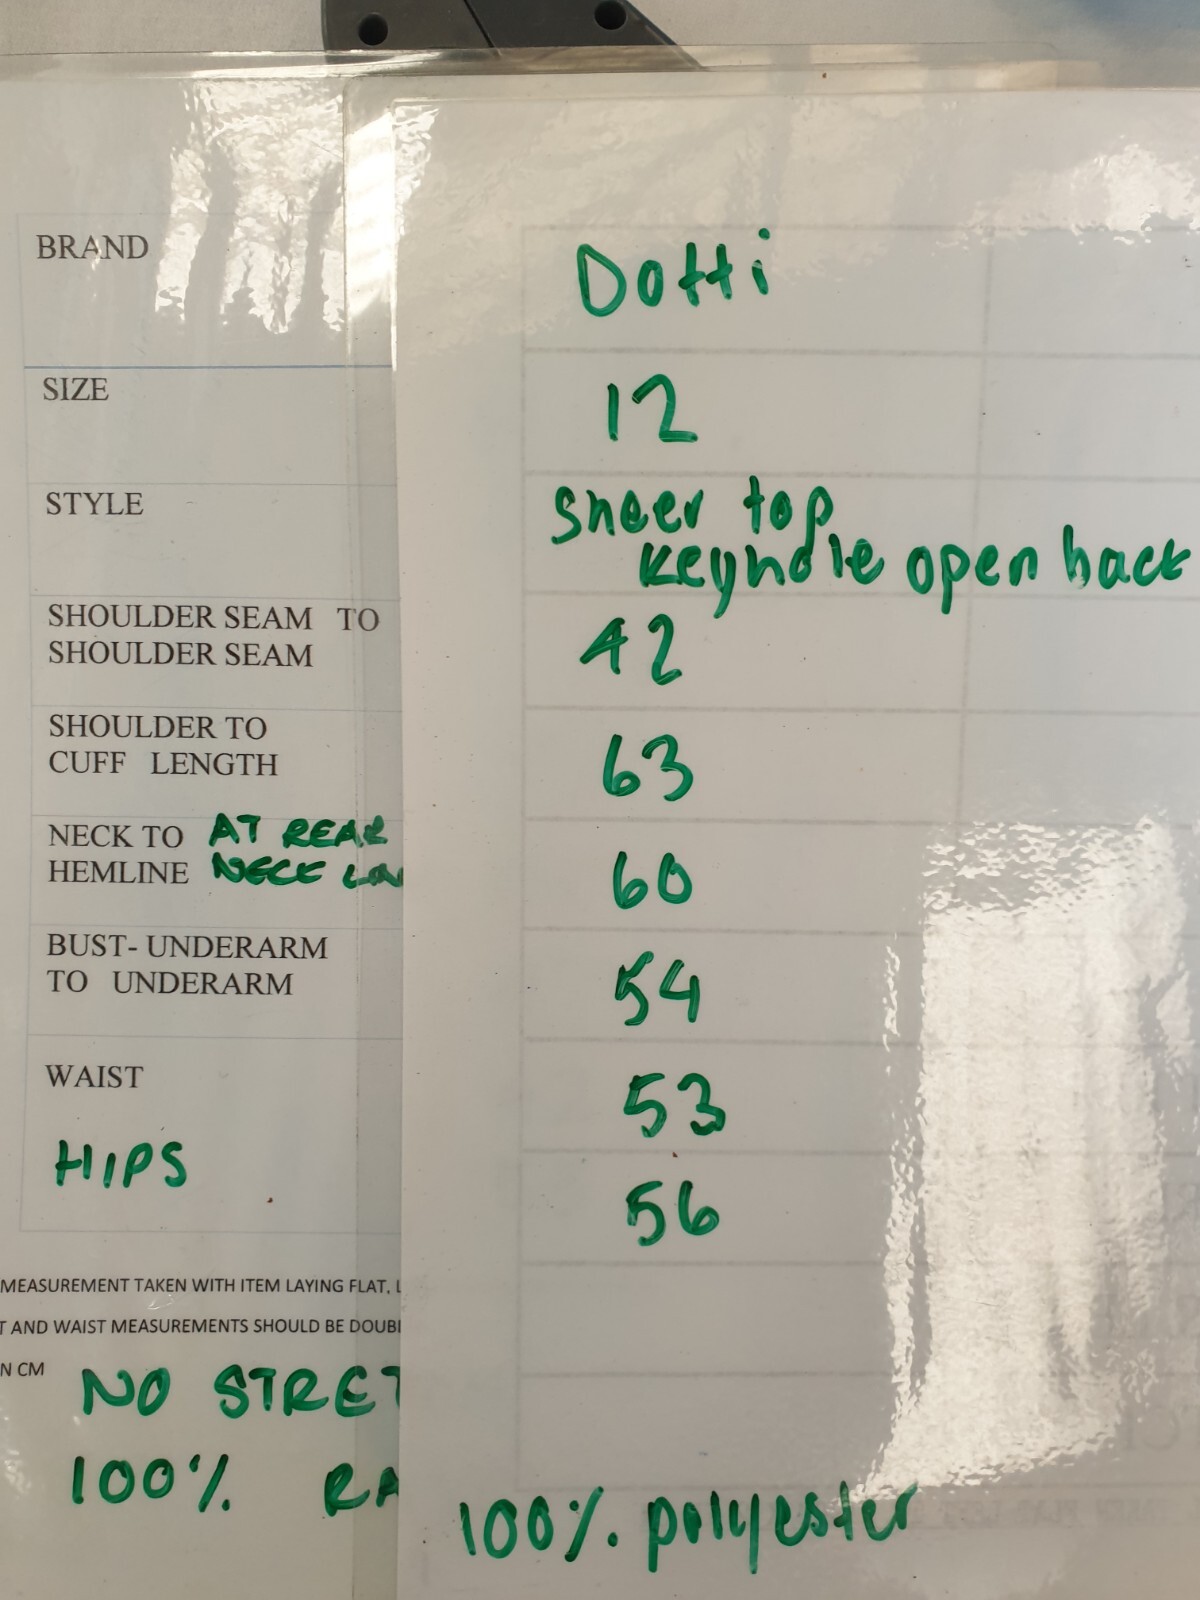 BRAND
Dotti
SIZE
12
STYLE
sheer top
keyhole open back
SHOULDER SEAM TO
SHOULDER SEAM
42
SHOULDER TO
CUFF LENGTH
63
NECK TO AT REAR
HEMLINE NECK
60
BUST- UNDERARM
TO UNDERARM
54
WAIST
53
HIPS
56
MEASUREMENT TAKEN WITH ITEM LAYING FLAT,
AND WAIST MEASUREMENTS SHOULD BE
N CM
NO STRET
100%
100% polyester